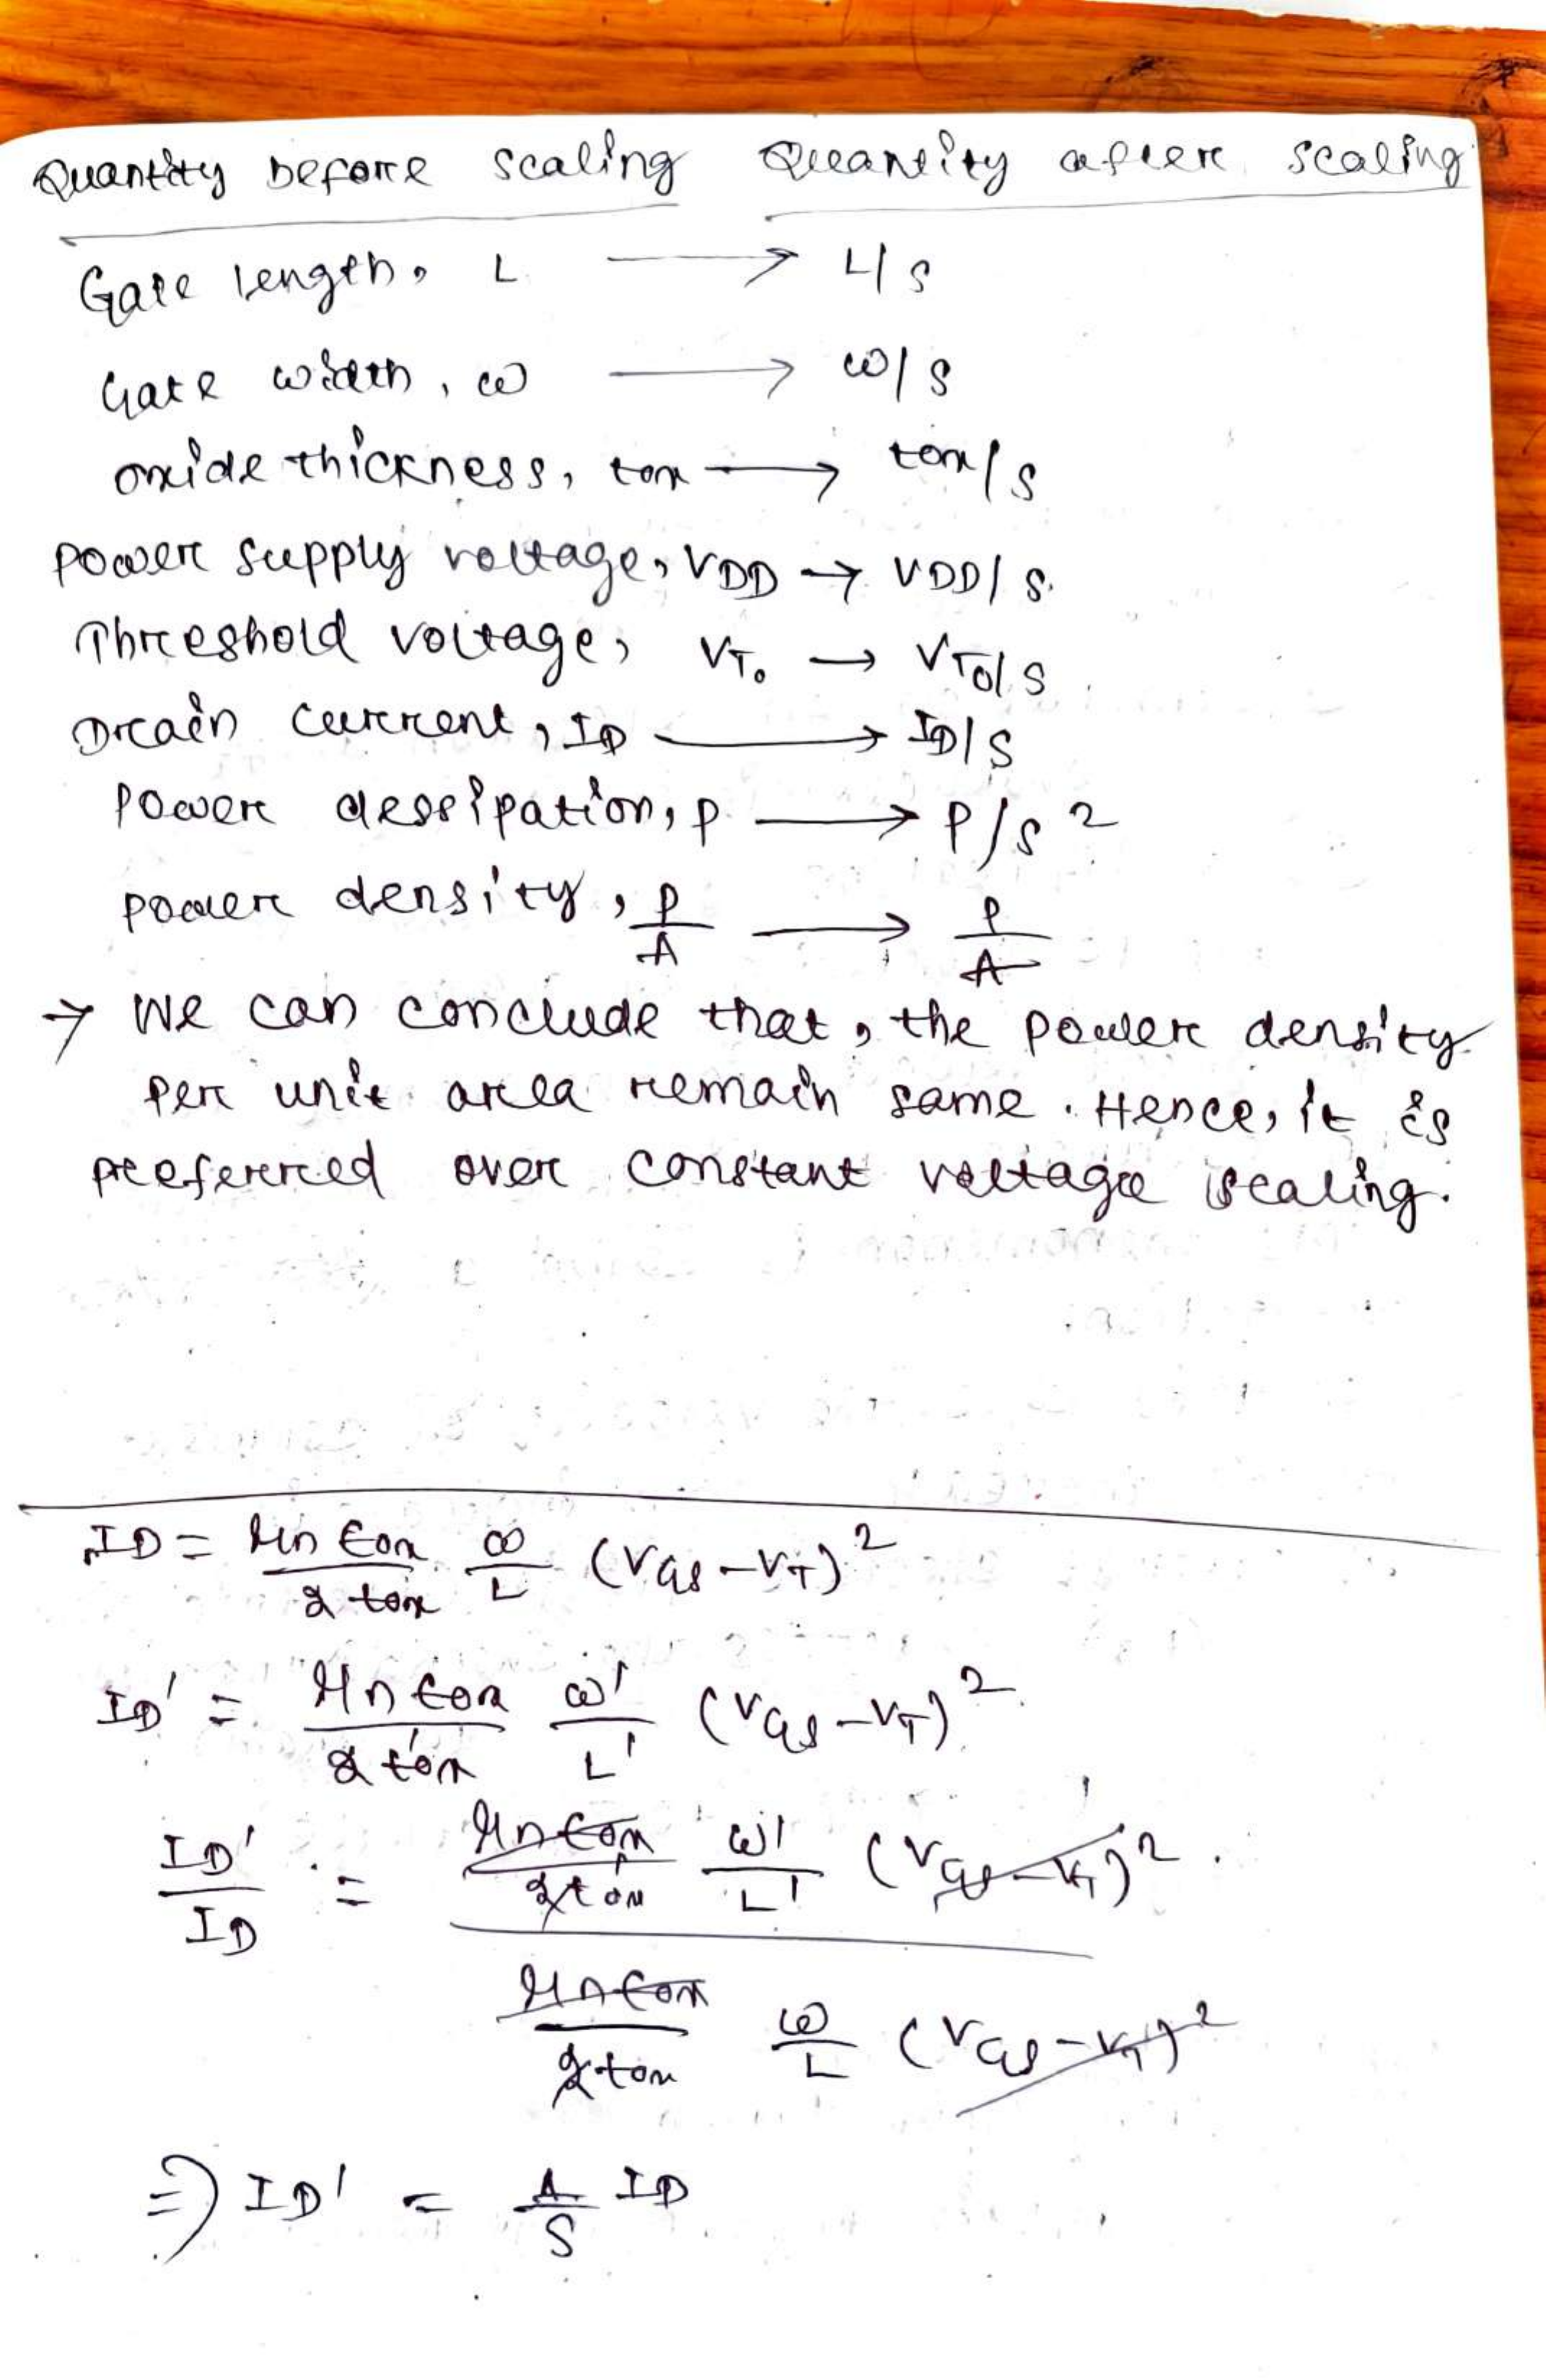 Quantity Before scaling Quantity after scaling
Gate length, L → L/S
Gate width, W → W/S
oxide thickness, tox → tox/S
Power supply voltage, VDD → VDD/S.
Threshold voltage, VT₀ → VT0/S
Drain current, ID → ID/S
Power dessipation, P → P/S²
Power density, P/A → P/A
→ We can conclude that, the power density
per unit area remain same. Hence, it is
preferred over constant voltage scaling.
ID = μn εox / 2 tox W/L (VGS - VT)²
ID' = μn εox / 2 tox' W'/L' (VGS - VT)²
ID'/ID = μn εox / 2 tox' W'/L' (VGS - VT)'²
μn εox / 2 tox W/L (VGS - VT)²
⇒ ID' = 1/S ID